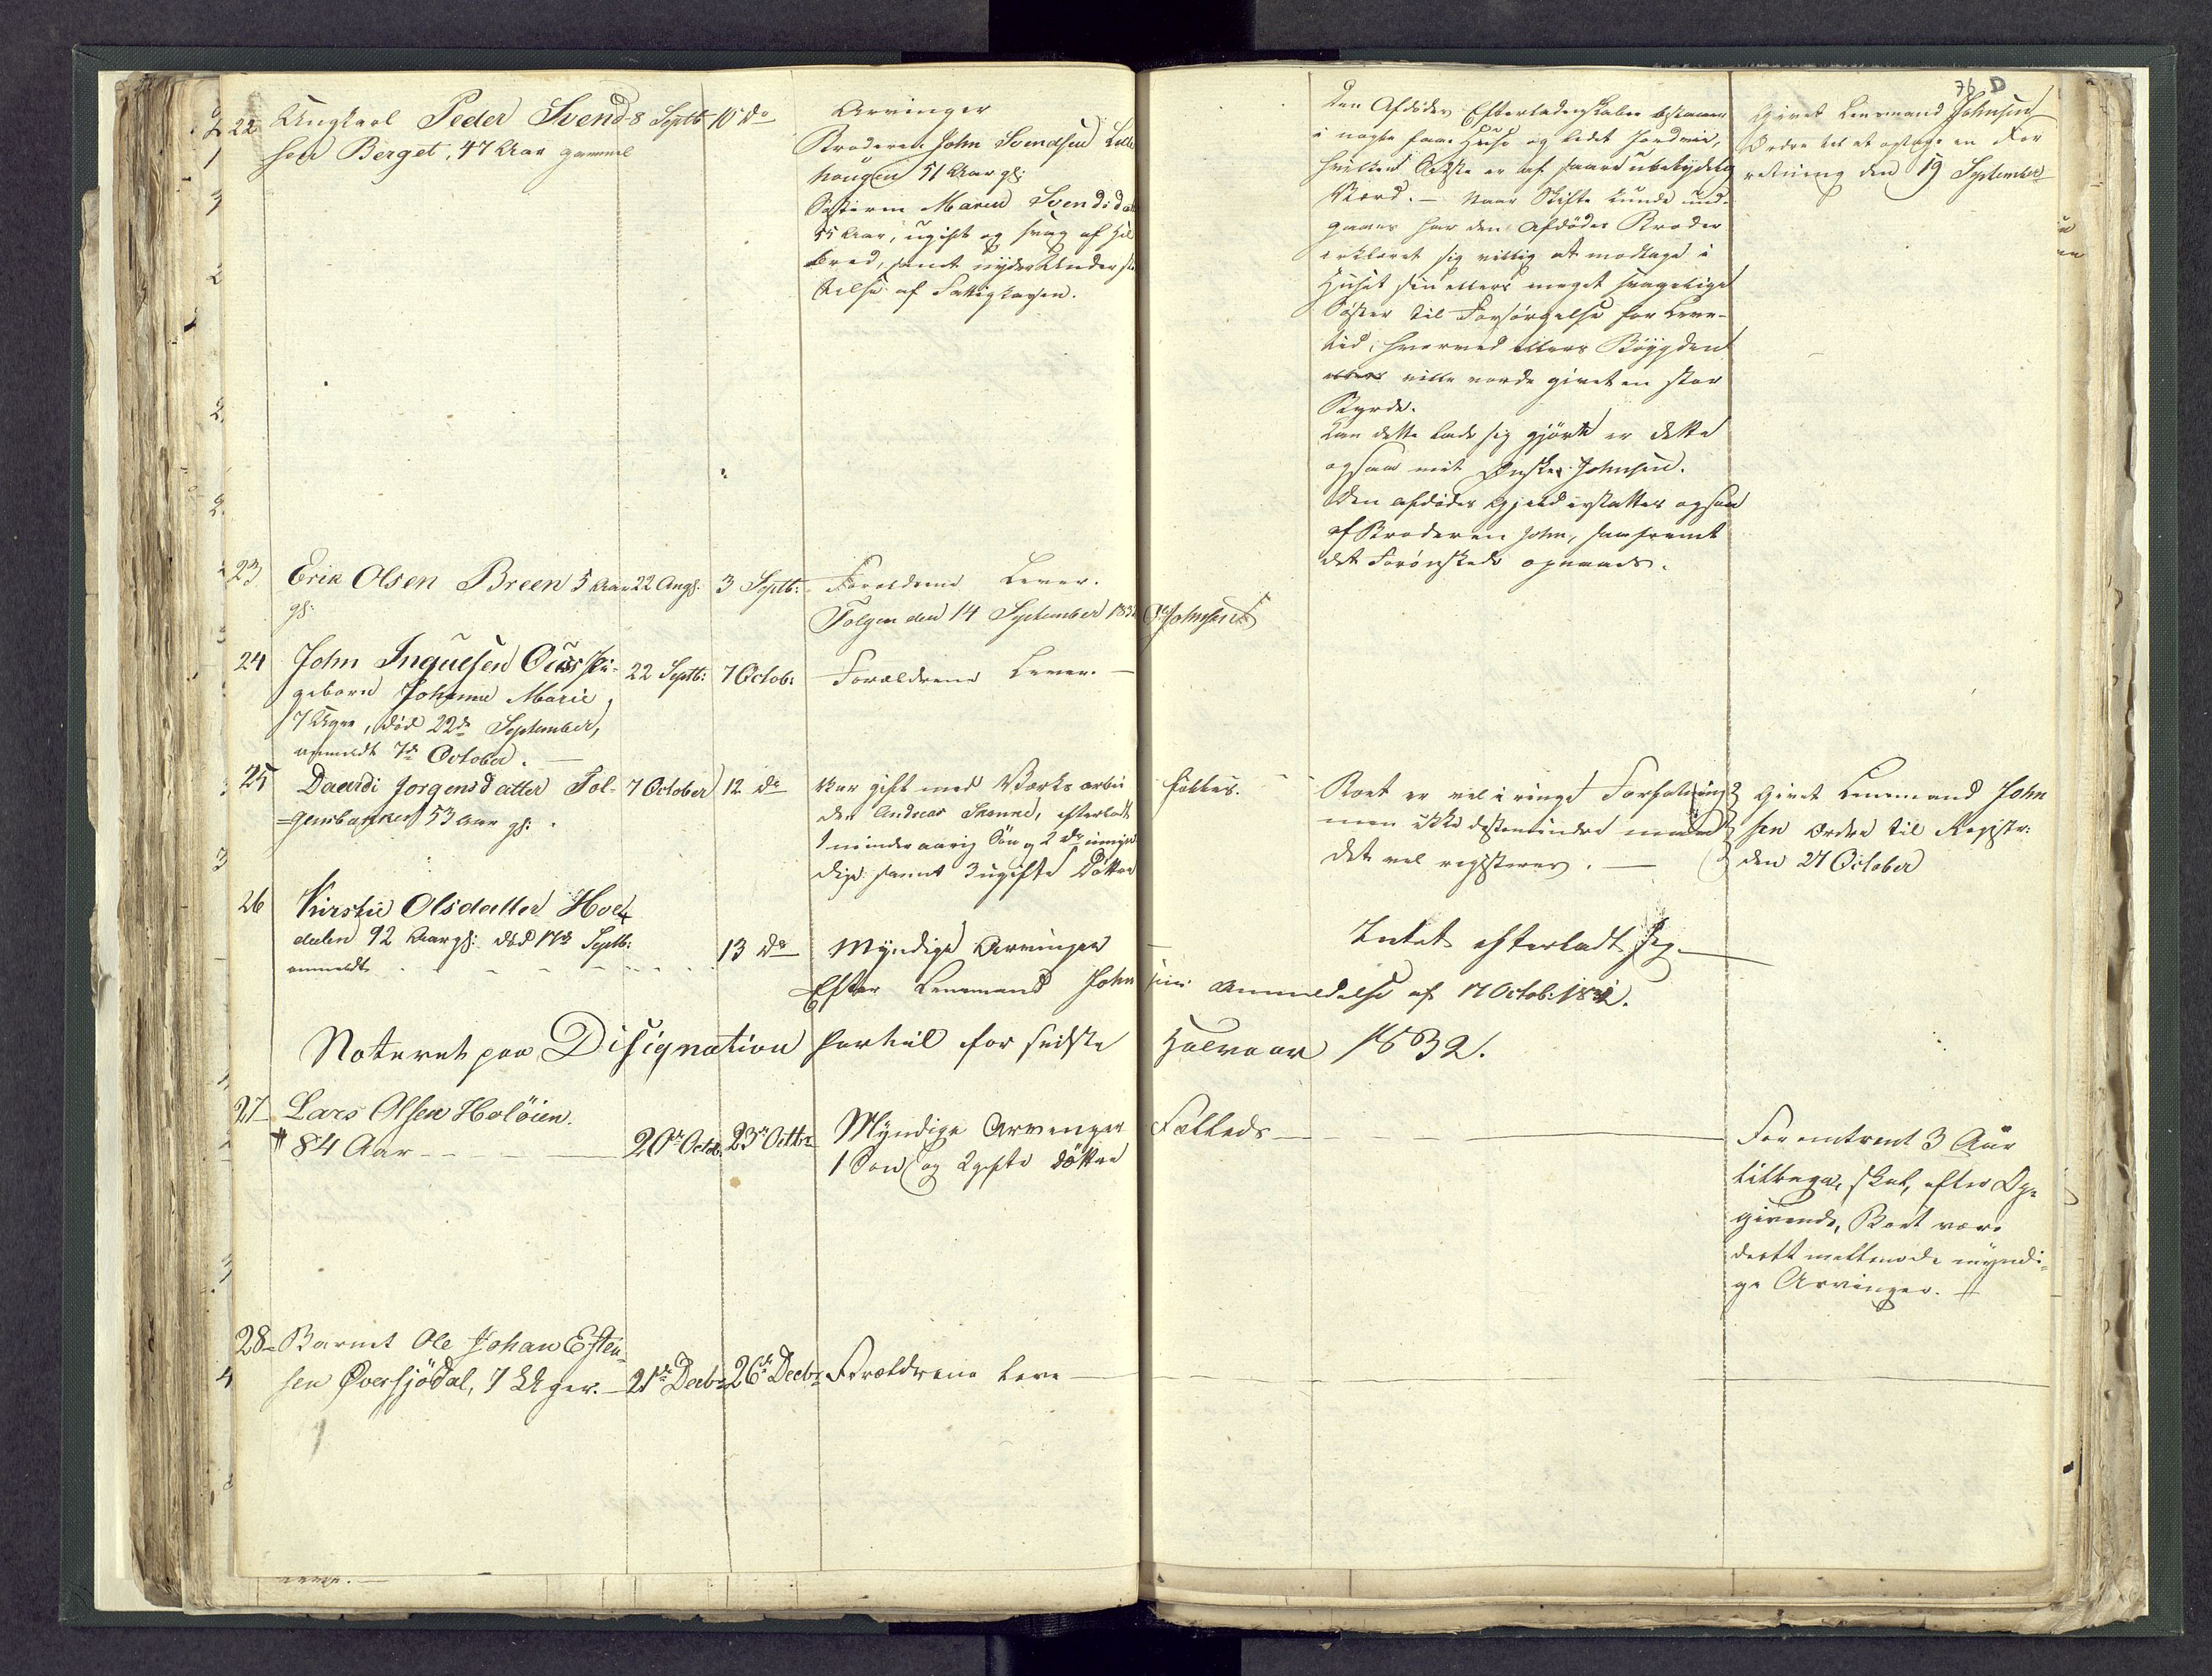 76 D
22 Ungkarl Peder Svend- 8 Septb: 10 do
sen Berget, 47 Aar gammel
Arvinger
Broderen John Svendsen Lille
haugen 51 Aar gl:
Søsteren Maren Svendsd
55 Aar, ugift og svag af Hel
bred, samt nyder Under
telse af Fattigkassen.
Den Afdødes Efterladenskaber bestaaer
i nogle faae Huse og lidt Jordvei,
hvilket Sidste er af saare ubetydelig
Værd. — Naar Skifte kunde und-
gaaes har den Afdødes Broder
erklæret sig villig at modtage i
Huset sin ellers meget svagelige
Søster til Forsørgelse for Leve-
tid, hvorved ellers Bøygden
ellers ville vorde givet en stor
Byrde.
Kan dette lade sig gjøre er dette
ogsaa mit Ønske. Johnsen.
Den afdødes Gjeld erstattes ogsaa
af Broderen John, saafremt
det Forønskede opnaaes.
Givet Lensmand Johnsen
Ordre til at optage en For
retning den 19 September
23 Erik Olsen Breen 5 Aar 22 Augs: 3 Septb: Forældrene Lever.
gl:
Tolgen den 14 September 1832 Johnsen
24 John Inguesen Ouss
geborn Johanne Marie,
7 Uger, død 22de September,
anmeldt 7de October. —
22 Septb: 7 Octob: Forældrene Lever. —
25 Daardi Jorgensdatter Tol-
=gensbakken 53 Aar gl:
7 October 12 do
Var gift med Værksarbei
der Andreas, efterladt
1 mindreaarig Søn og 2 do myn
dige samt 3 ugifte Døttre
Fælles.
Boet er vel i ringe Forfatning
men ikke destomindre maatte
det vel registeres. —
Givet Lensmand John
sen Ordre til Registr:
den 27 October
26 Kirstie Olsdatter Hol
dalen 92 Aar gl: død 17de Septb:
anmeldt 13 do Myndige Arvinger — Intet efterladt sig. —
Efter Lensmand Johnsens Anmeldelse af 17 Octob: 1832.
Noteret paa Disignation for sidste Halvaar 1832.
27 Lars Olsen Holøien.
84 Aar — 20de Octob. 23de Octbr Myndige Arvenger
1 Søn og 2 gifte Døttre
Fælleds —
For omtrent 3 Aar
tilbage, skal, efter Op-
givende, Boet være
deelt mellem de myndi-
ge Arvinger.
28 Barnet Ole Johan Esten-
sen Øversjødal, 7 Uger. — 21de Decbr 26de Decbr Forældrene leve —